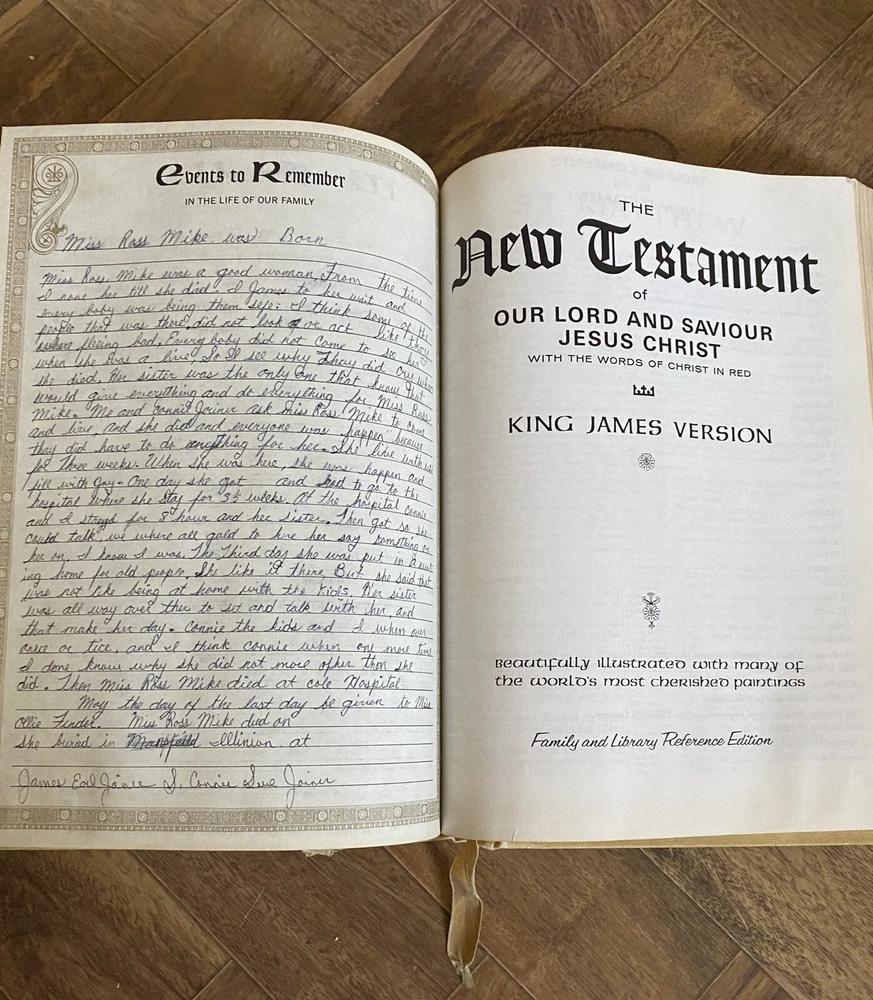 Events to Remember
IN THE LIFE OF OUR FAMILY
Miss Ross Mike was Born
Miss Ross Mike was a good woman. From the time
I none her till she died. I James to her wait and
every boby was being them sefe: I think some of the
people that was there did not look or act like they
where feeing bad. Every boby did not come to see her
when she was a live. So I see why thay did cry when
she died. Her sister was the only one that know that
would give everything and do everything for Miss Ross
Mike. Me and Connie Joiner ask Miss Ross Mike to come
and live, and she did and everyone was happen because
thay did have to do anything for her. She live with us
for Three weeks. When she was here, she was happen and
fill with Joy. One day she got and had to go to the
hospital where she stay for 3½ weeks. At the hospital Connie
and I stayd for 8 hour and her sister. Then got so she
could talk, we where all gald to hire her say something or
her on. I know I was. The Third day she was put in a
ing home for old peoper. She like it there. But she said that
was not like being at home with the kids. Her sister
was all way over ther to sit and talk with her and
that make her day. Connie the kids and I when over
once or tice, and I think connie when one more time
I done know why she did not more ofher then she
did. Then Miss Ross Mike died at cole Hospital
May the day of the last day be given to Miss
Ollie Finder. Miss Ross Mike died on
She buried in Illinion at
James Earl Joiner S, Connie Sue Joiner
THE
New Testament
of
OUR LORD AND SAVIOUR
JESUS CHRIST
WITH THE WORDS OF CHRIST IN RED
KING JAMES VERSION
Beautifully illustrated with many of
the world's most cherished paintings
Family and Library Reference Edition